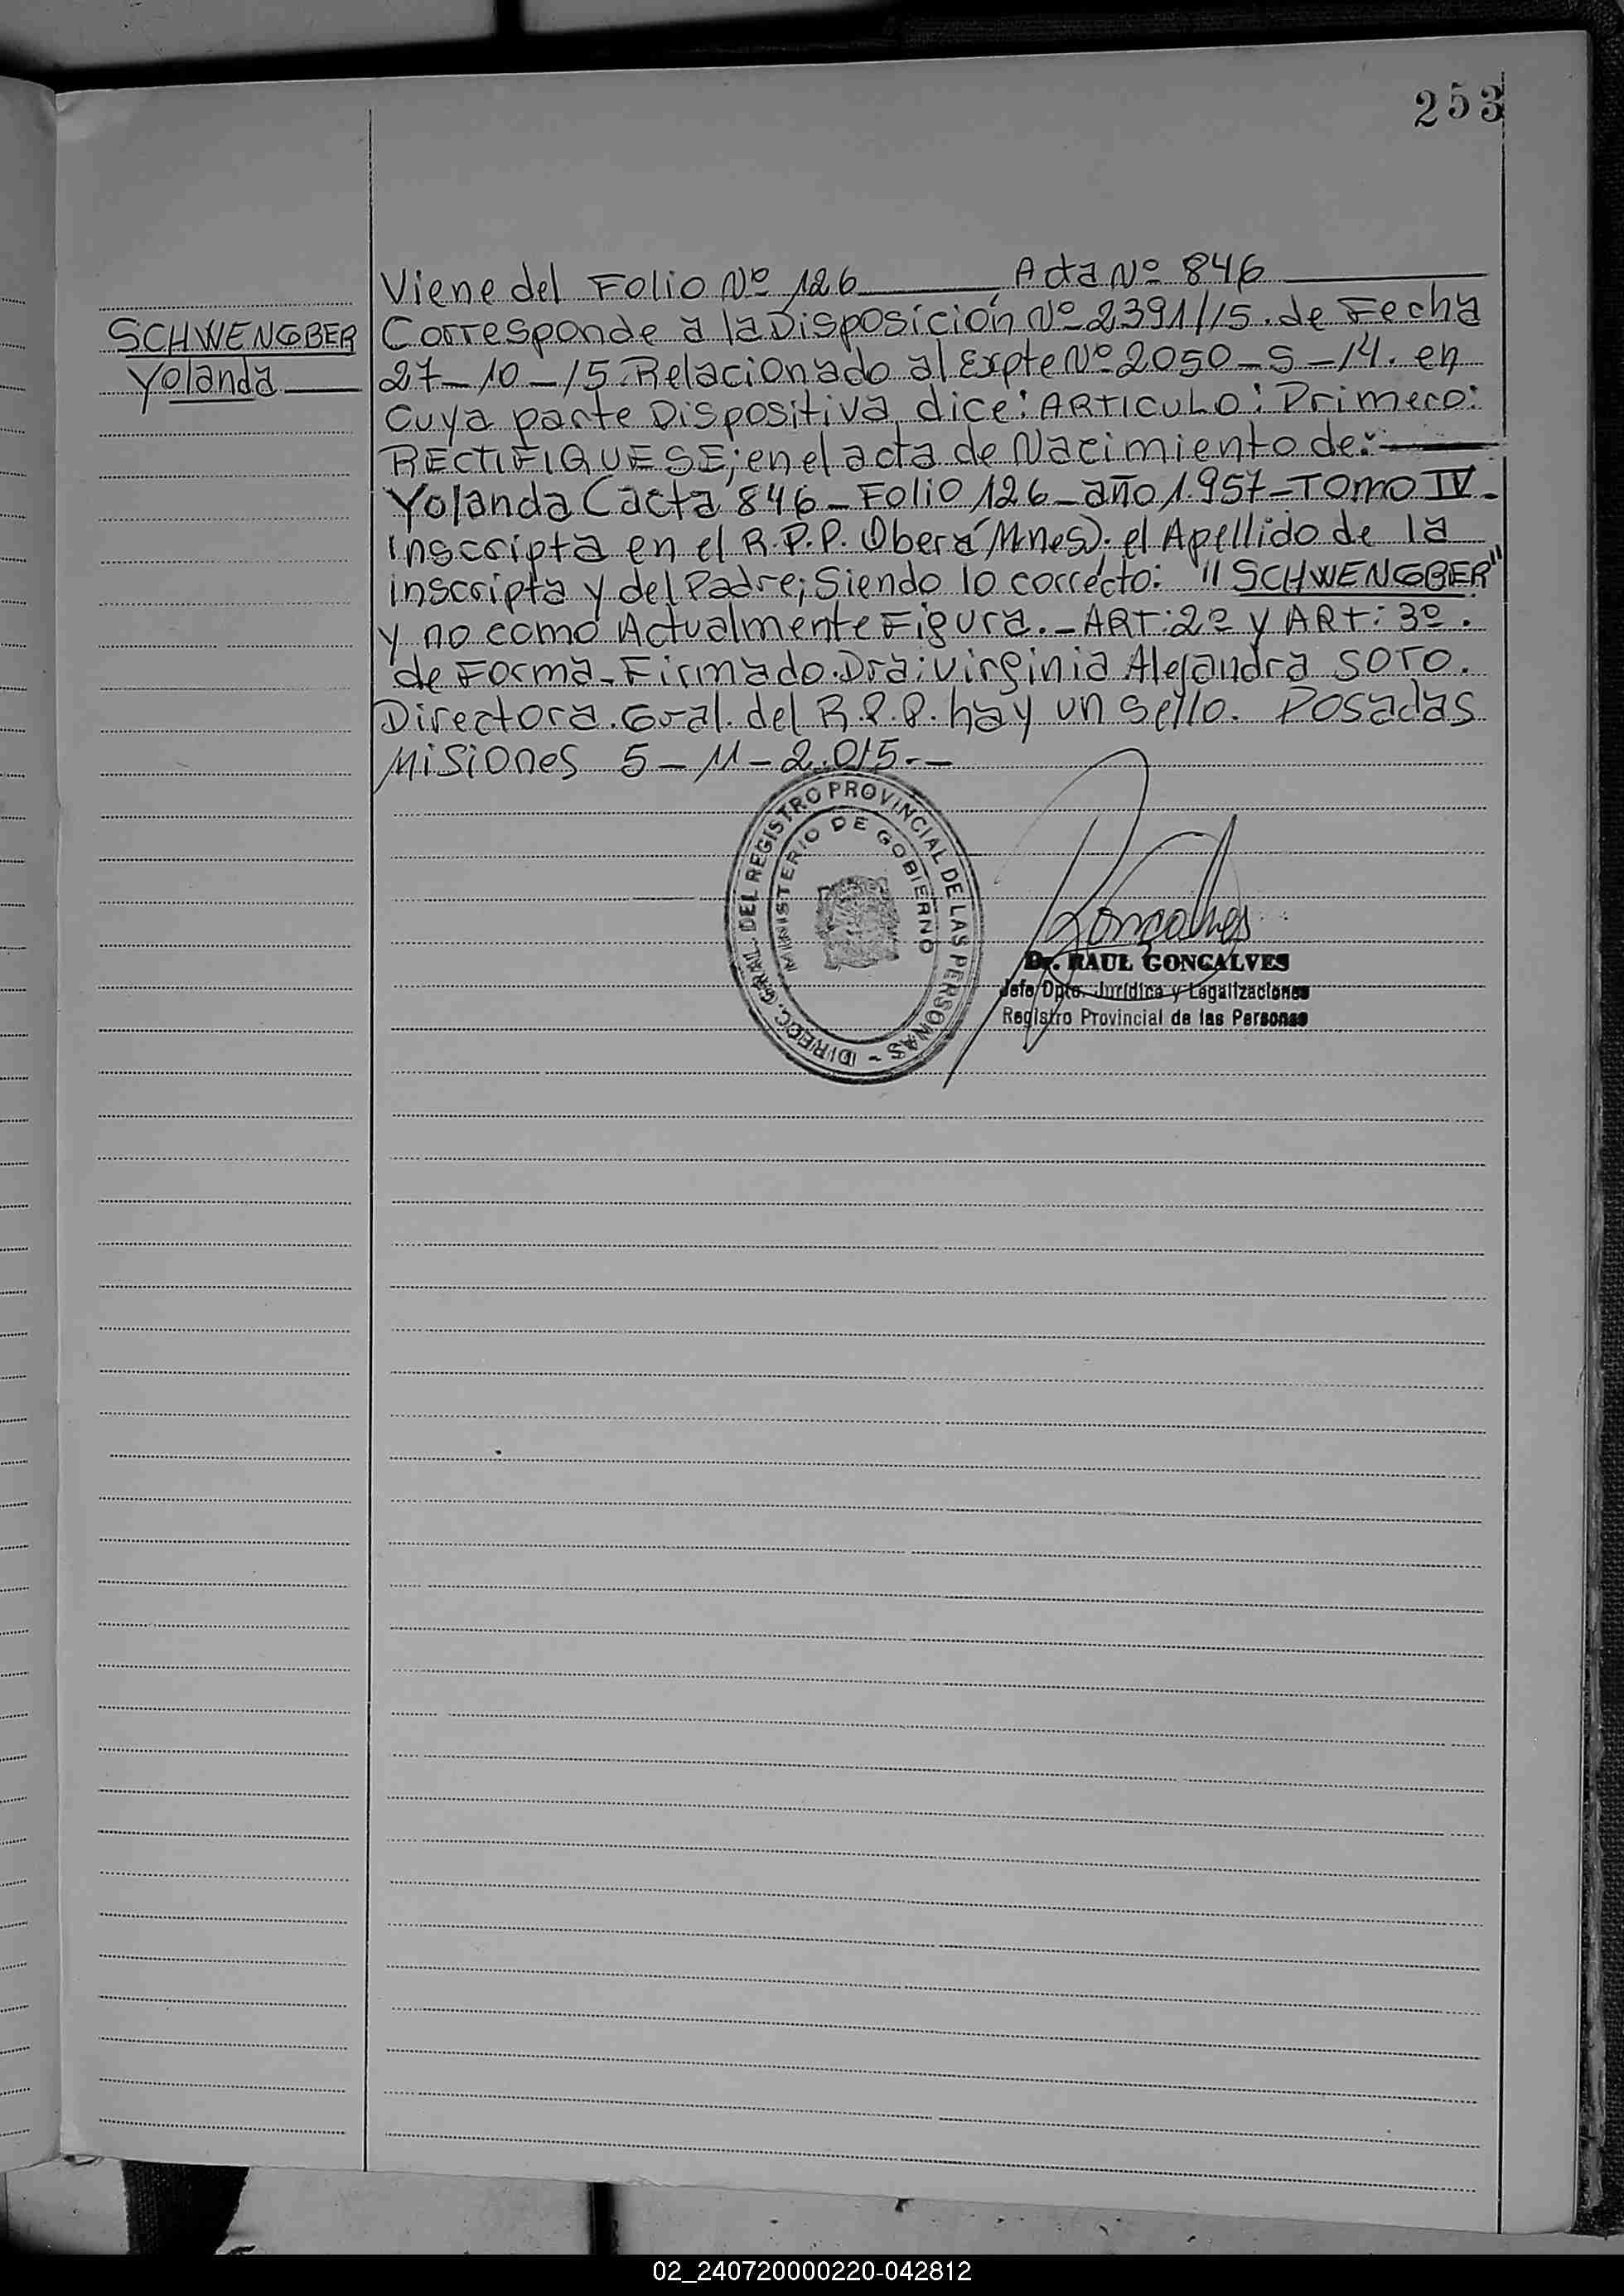 253
Viene del Folio Nº 126 Acta Nº 846
SCHWENGBER
Yolanda
Corresponde a la Disposición Nº 2391/15. de Fecha
27-10-15. Relacionado al Expte Nº 2050-S-14. en
Cuya parte Dispositiva dice: ARTICULO: Primero:
RECTIFIQUESE; en el acta de Nacimiento de:
Yolanda (acta 846-Folio 126-año 1.957-TOMO IV-
Inscripta en el R.P.P. Oberá Mnes). el Apellido de la
inscripta y del Padre; Siendo lo correcto: "SCHWENGBER"
y no como Actualmente Figura.-ART:2º y ART: 3º.
de Forma-Firmado.Dra: Virginia Alejandra SOTO.
Directora.Gral. del R.P.P. hay un sello. Posadas
Misiones 5-11-2.015.-
DIRECC. GRAL. DEL REGISTRO PROVINCIAL DE LAS PERSONAS -
MINISTERIO DE GOBIERNO
Goncalves
Dr. RAUL GONCALVES
Jefe Dpto. Jurídica y Legalizaciones
Registro Provincial de las Personas
02_240720000220-042812